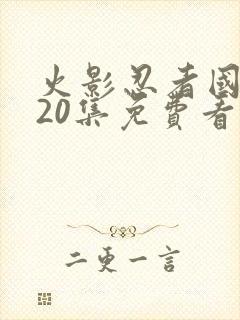 火影忍者國
20集免費看
二更一言